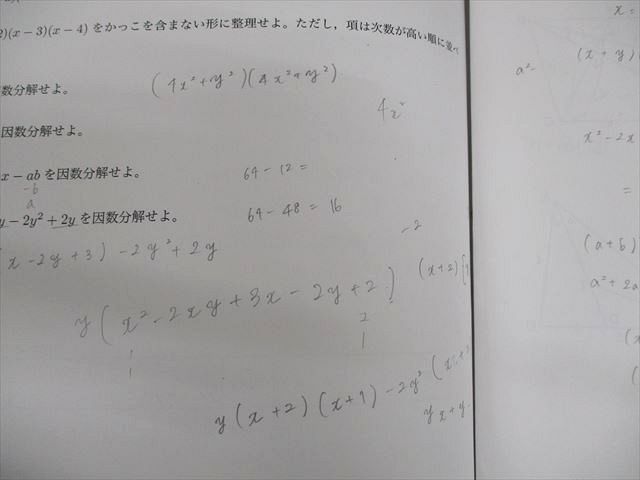 2)(x−3)(x−4) をかっこを含まない形に整理せよ。ただし，項は次数が高い順に並べ
(4x²+y²)(4x²+y²)
数分解せよ。
4x²
因数分解せよ。
x − ab を因数分解せよ。
64 − 12 =
-b
a
y − 2y² + 2y を因数分解せよ。
64 − 48 = 16
-2
(x −2y +3) −2y² + 2y
(x+2)
y(x² − 2xy + 3x − 2y + 2)
2
1
y(x+2)(x+1) − 2y²(x
yx + y
x =
(x + y)
a²-
x² − 2x
=
(a + b)
a² + 2a
(x
(